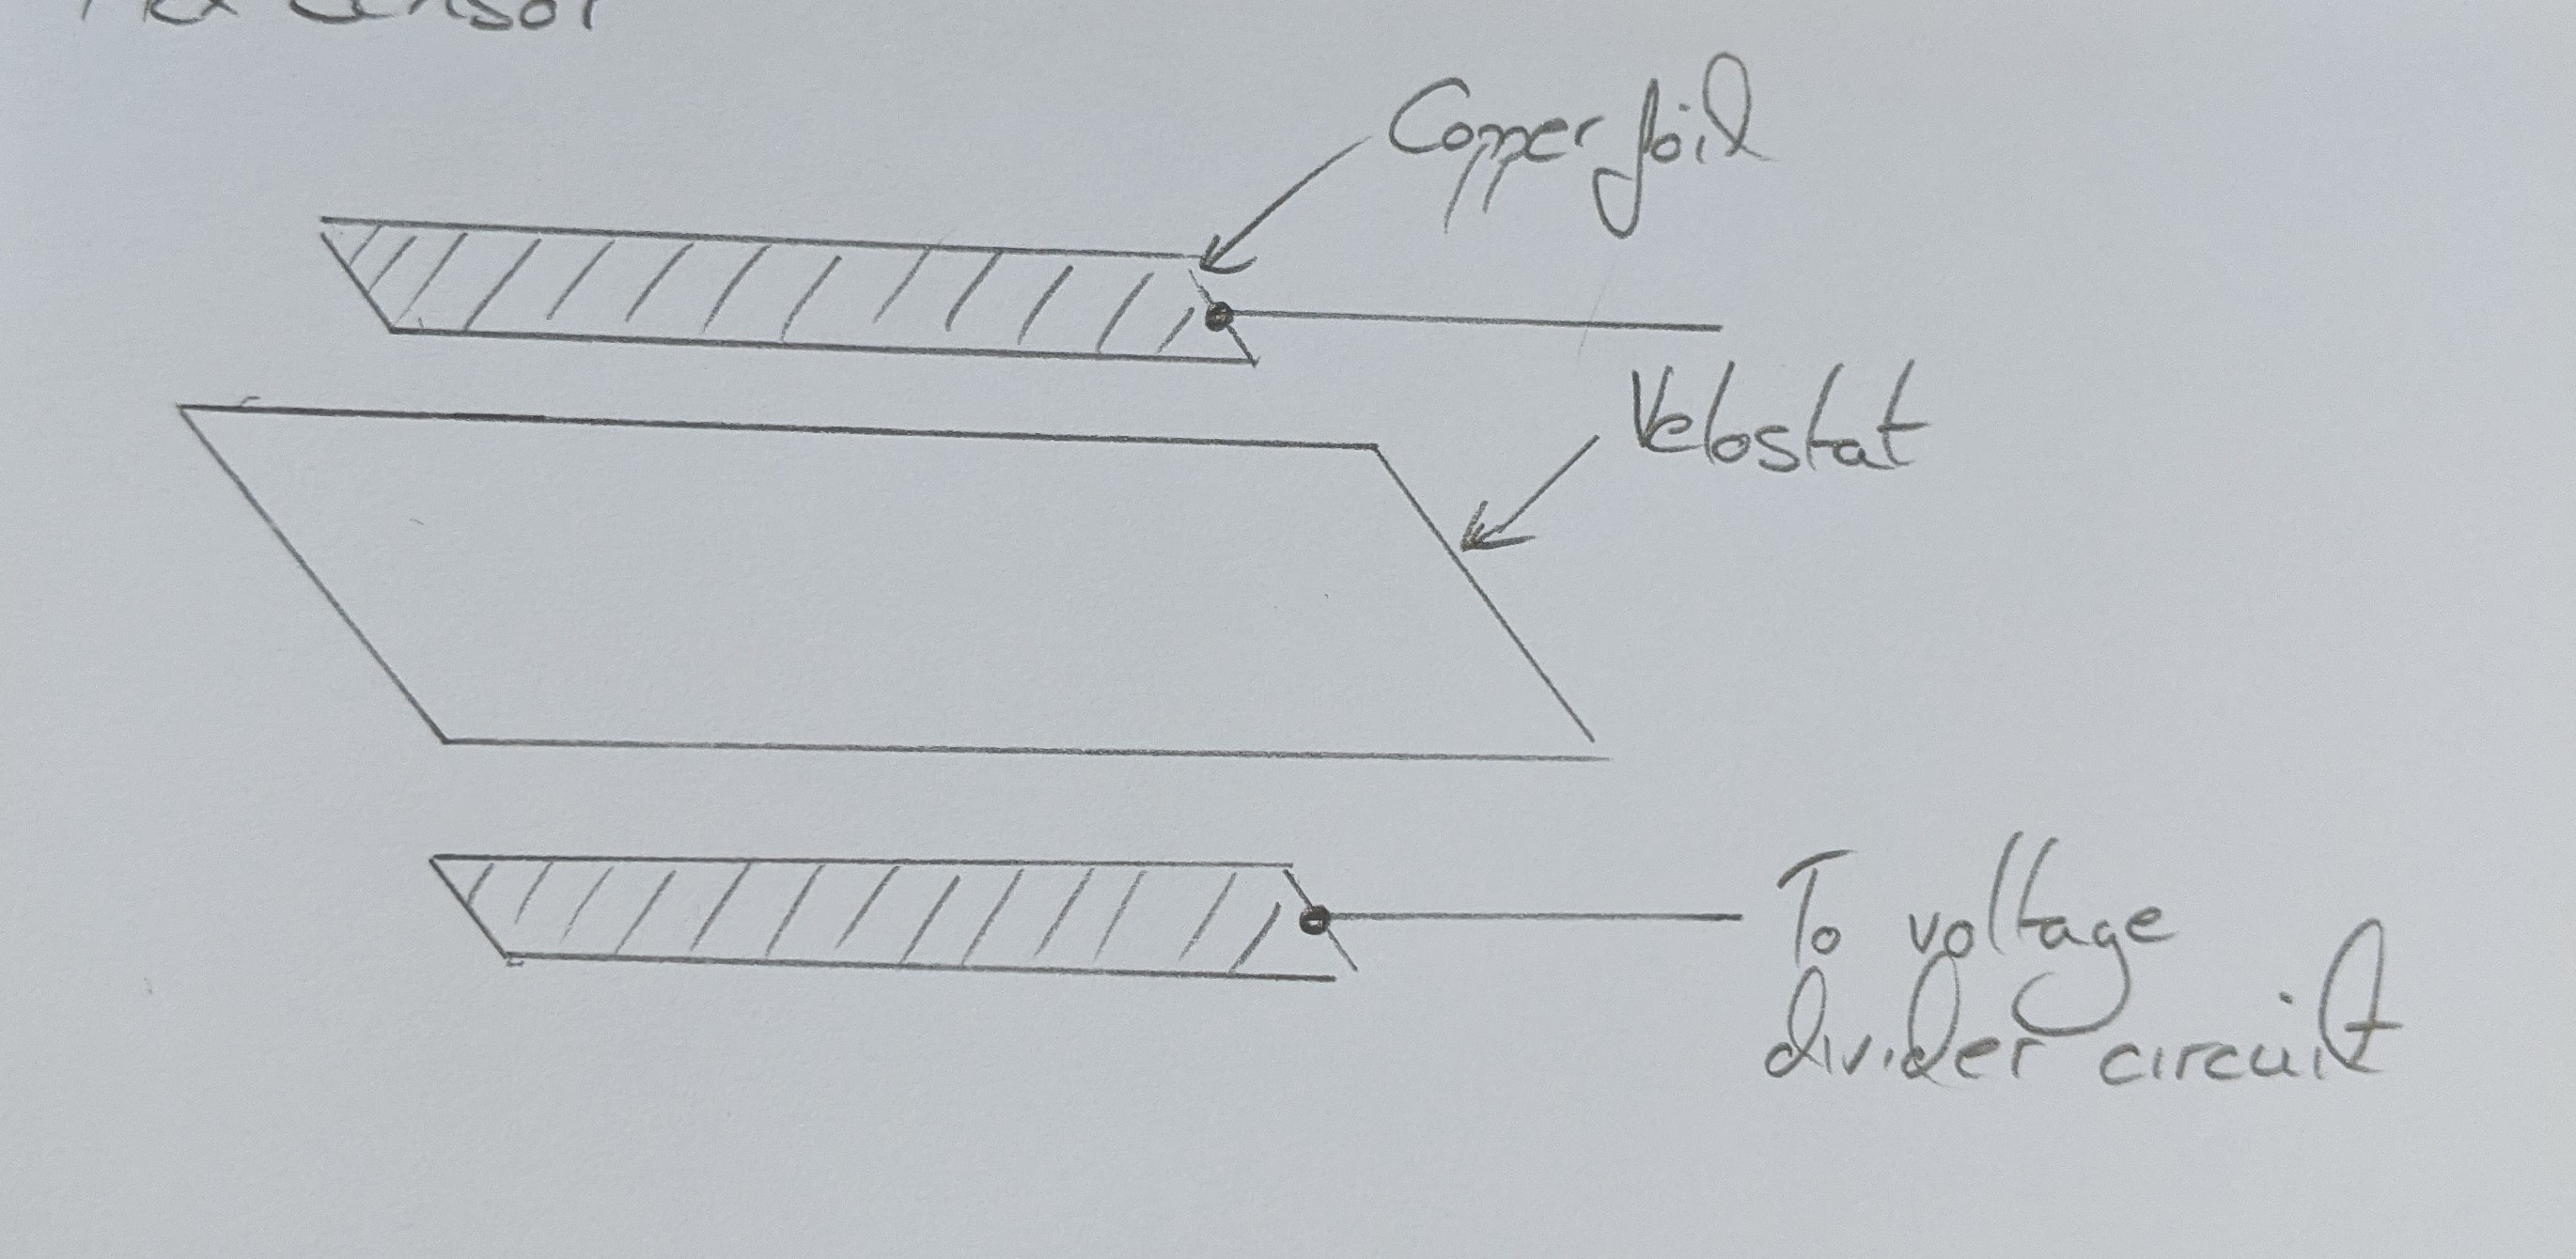 Flex Sensor
Copper foil
Velostat
To voltage
divider circuit